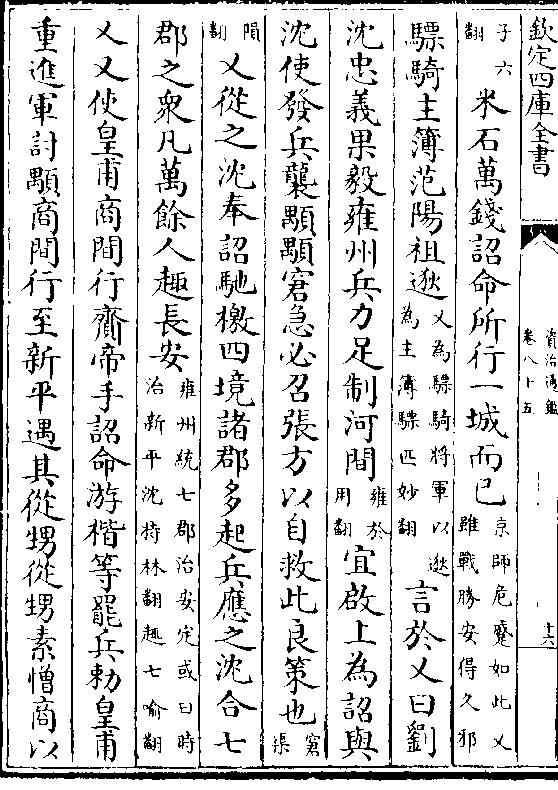 欽定四庫全書
資治通鑑
卷八十五
十六
子六
翻
米石萬錢詔命所行一城而已
京師危蹙如此乂
雖戰勝安得久邪
驃騎主簿范陽祖逖
乂為驃騎將軍以逖
為主簿驃匹妙翻
言於乂曰劉
沈忠義果毅雍州兵力足制河間
雍於
用翻
宜啟上為詔與
沈使發兵襲顒顒窘急必召張方以自救此良策也
窘
渠
隕
翻
乂從之沈奉詔馳檄四境諸郡多起兵應之沈合七
郡之衆凡萬餘人趣長安
雍州統七郡治安定或曰時
治新平沈持林翻趣七喻翻
乂又使皇甫商間行齎帝手詔命游楷等罷兵勅皇甫
重進軍討顒商間行至新平遇其從甥從甥素憎商以